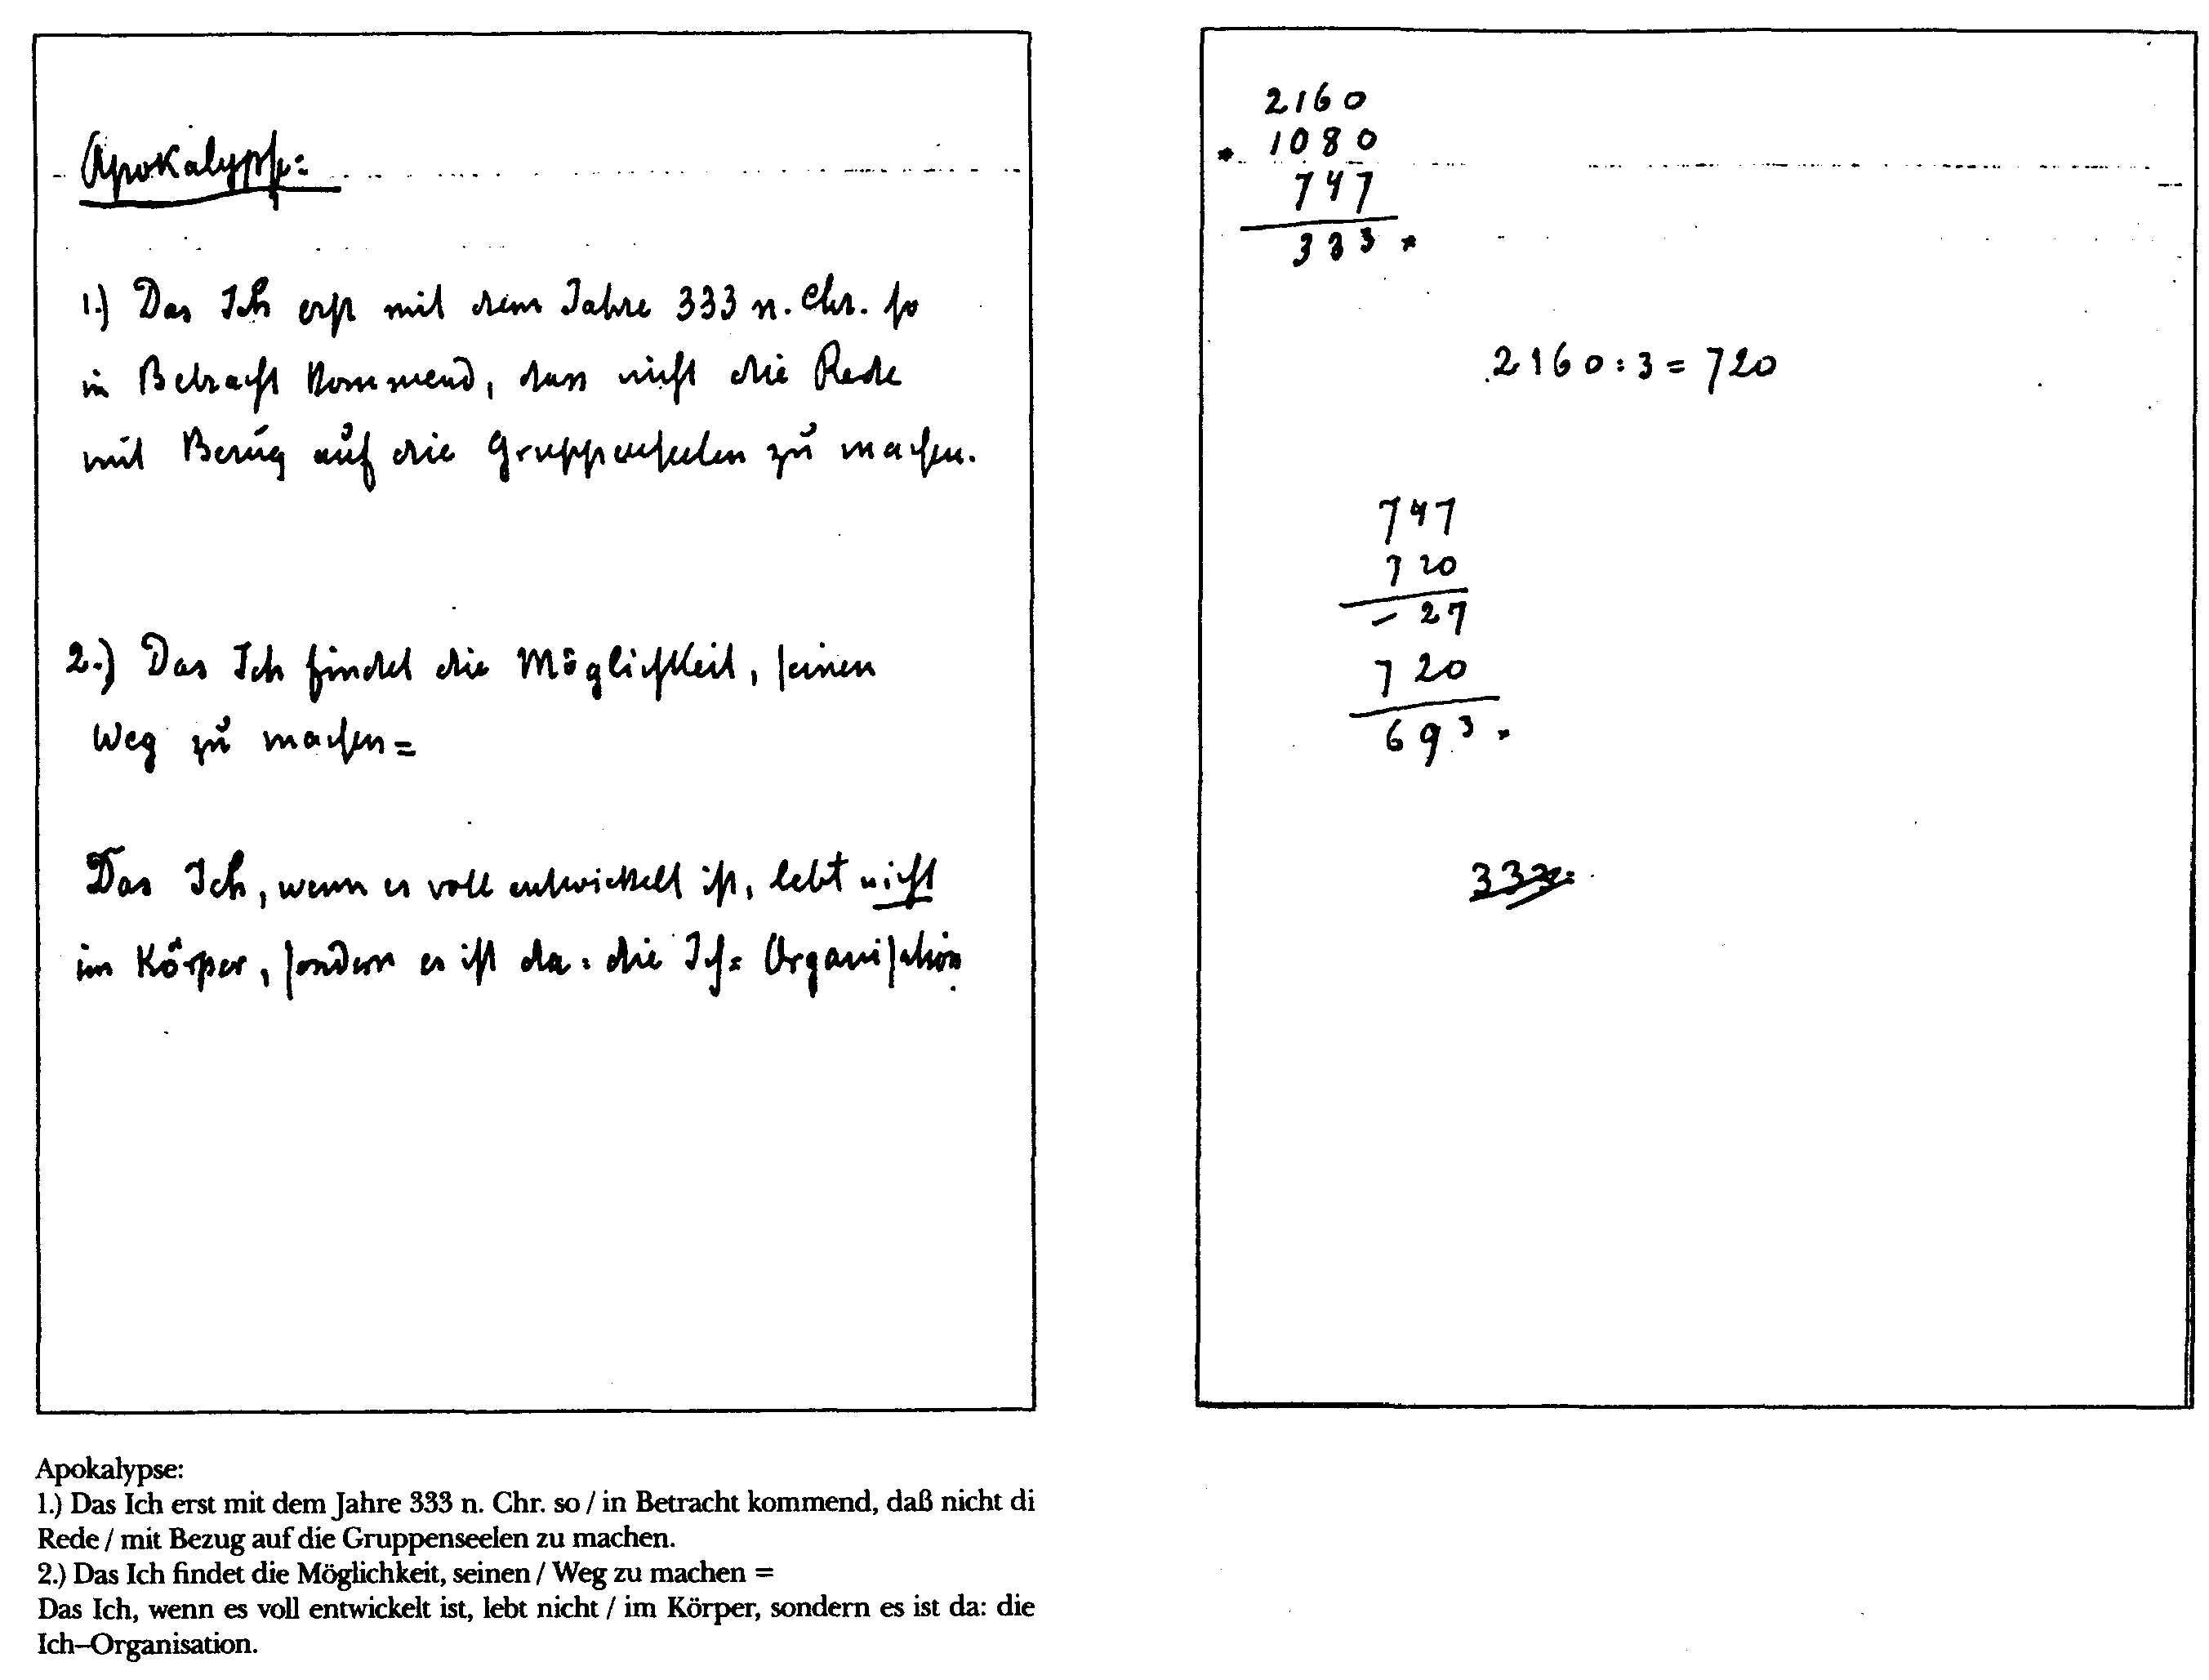 Apokalypse:
1.) Das Ich erst mit dem Jahre 333 n. Chr. so
in Betracht kommend, dass nicht die Rede
mit Bezug auf die Gruppenseelen zu machen.
2.) Das Ich findet die Möglichkeit, seinen
Weg zu machen =
Das Ich, wenn es voll entwickelt ist, lebt nicht
im Körper, sondern es ist da: die Ich=Organisation.
2160
* 1080
747
333 *
2160 : 3 = 720
747
720
– 27
720
693 *
333:
Apokalypse:
1.) Das Ich erst mit dem Jahre 333 n. Chr. so / in Betracht kommend, daß nicht di
Rede / mit Bezug auf die Gruppenseelen zu machen.
2.) Das Ich findet die Möglichkeit, seinen / Weg zu machen =
Das Ich, wenn es voll entwickelt ist, lebt nicht / im Körper, sondern es ist da: die
Ich–Organisation.